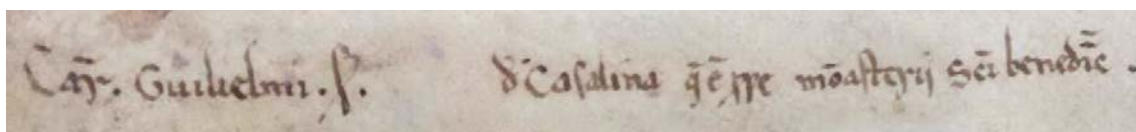 Car̄. Guilielmi. ſ. d' Caſalina q̄ ē ꝓpe mōaſterij Scī benedic̄.